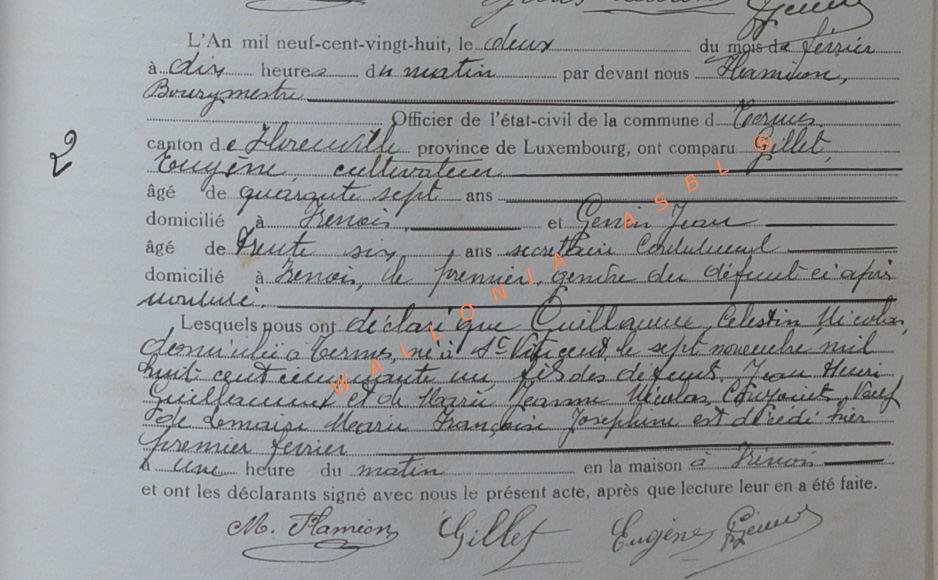 L'An mil neuf-cent-vingt-huit, le deux du mois de février
à dix heures du matin par devant nous
Bourgmestre
Officier de l'état-civil de la commune d Termes
canton de Florenville province de Luxembourg, ont comparu Gillet,
Eugène, cultivateur
âgé de quarante sept ans
domicilié à Frenois, et Jean
âgé de trente six ans secrétaire communal
domicilié à Frenois, le premier, gendre du défunt ci après
nommé.
Lesquels nous ont déclaré que Guillaume, Celestin Nicolas,
domicilié à Termes, né à St Vincent, le sept novembre mil
huit cent cinquante un, fils des defunts, Jean Henri
Guillaume et de Marie Jeanne Nicolas, Conjoints, Veuf
de Lemaire Marie Françoise Josephine est décédé hier
premier fevrier
à une heure du matin en la maison à Frénois
et ont les déclarants signé avec nous le présent acte, après que lecture leur en a été faite.
M. Flamion Gillet Eugène
2
WALLONIA ASBL ©